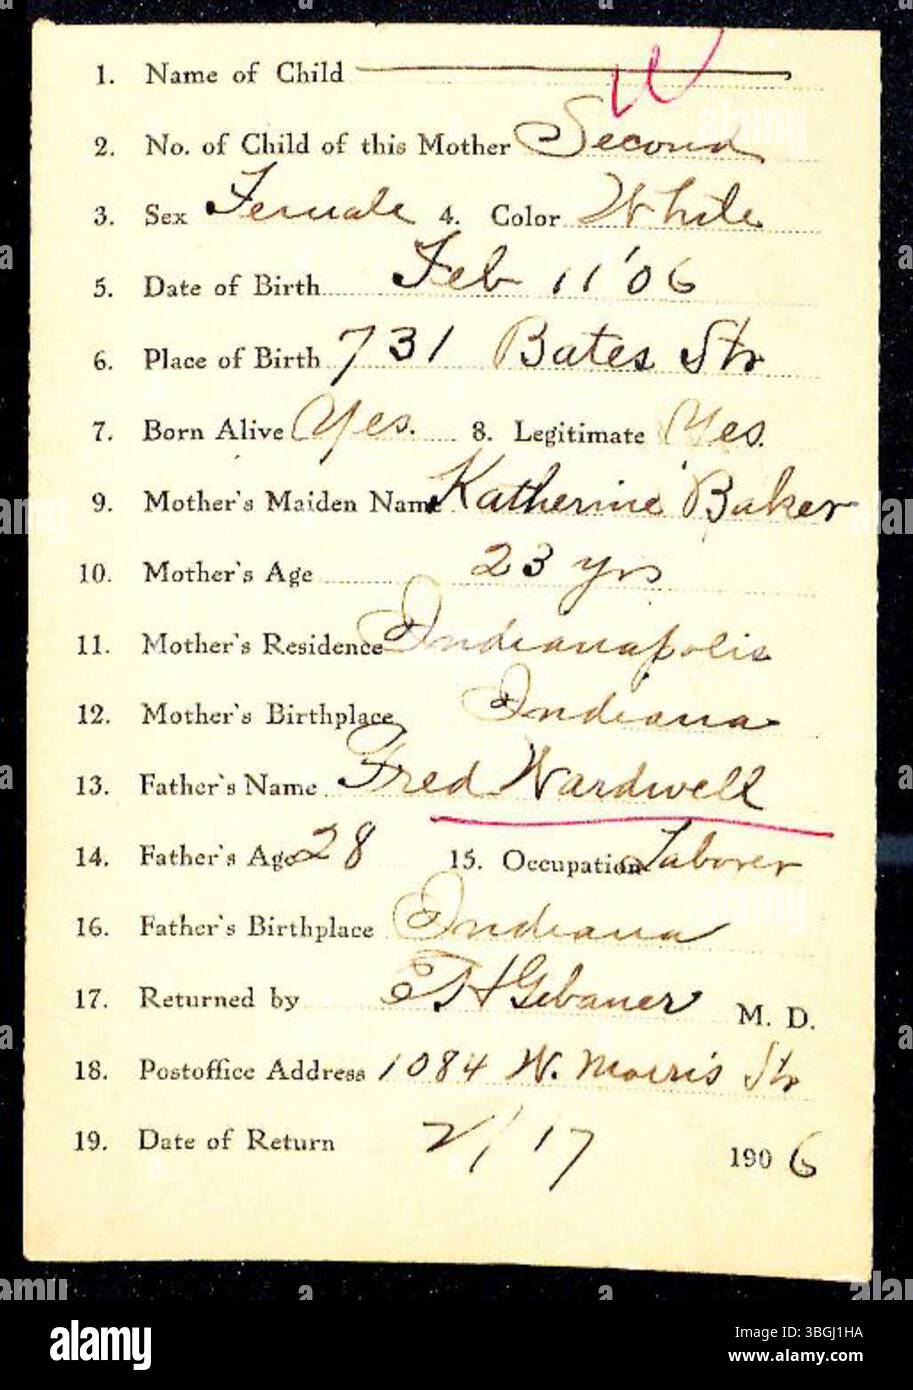 W
1. Name of Child
2. No. of Child of this Mother Second
3. Sex Female 4. Color White
5. Date of Birth Feb 11 '06
6. Place of Birth 731 Bates Str
7. Born Alive Yes. 8. Legitimate Yes.
9. Mother's Maiden Name Katherine Baker
10. Mother's Age 23 yrs
11. Mother's Residence Indianapolis
12. Mother's Birthplace Indiana
13. Father's Name Fred Wardwell
14. Father's Age 28 15. Occupation Laborer
16. Father's Birthplace Indiana
17. Returned by H Gebauer M. D.
18. Postoffice Address 1084 W. Morris Str
19. Date of Return 2/17 1906
alamy
Image ID: 3BGJ1HA
www.alamy.com